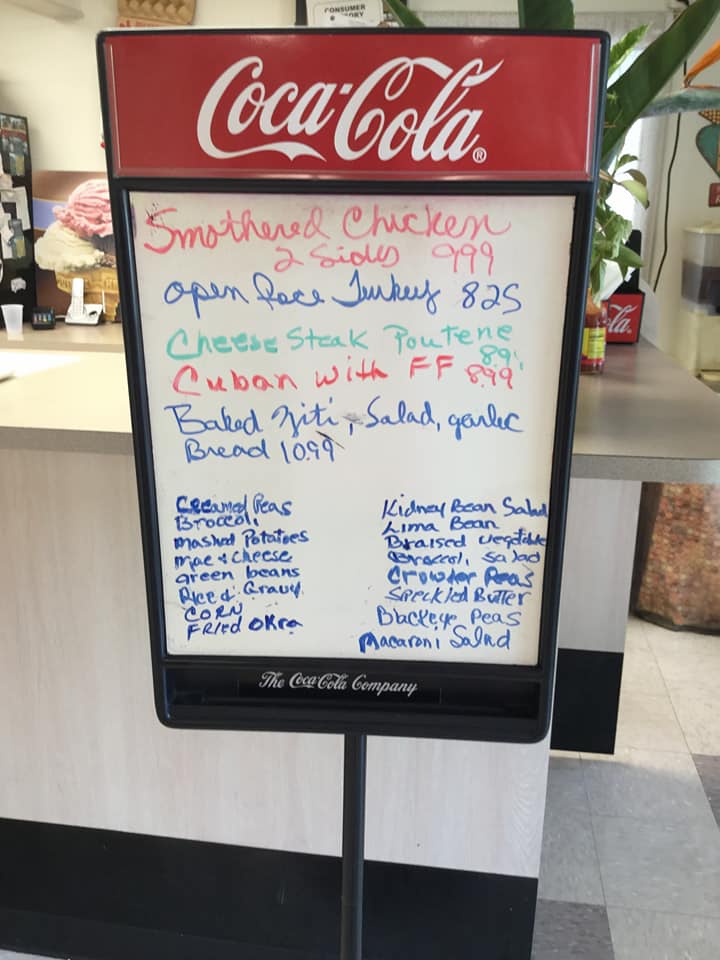 CONSUMER
Coca-Cola®
Smothered Chicken
2 Sides 999
open face Turkey 825
Cheese Steak Poutene
89
Cuban with FF 8.99
Baked Ziti, Salad, garlic
Bread 10.99
Creamed Peas
Broccoli
Mashed Potatoes
Mac & Cheese
green beans
Rice & Gravy
CORN
FRied OkRa
Kidney Bean Salad
Lima Bean
Braised vegetable
Broccoli Salad
Crowder Peas
Speckled Butter
Blackeye Peas
Macaroni Salad
The Coca-Cola Company